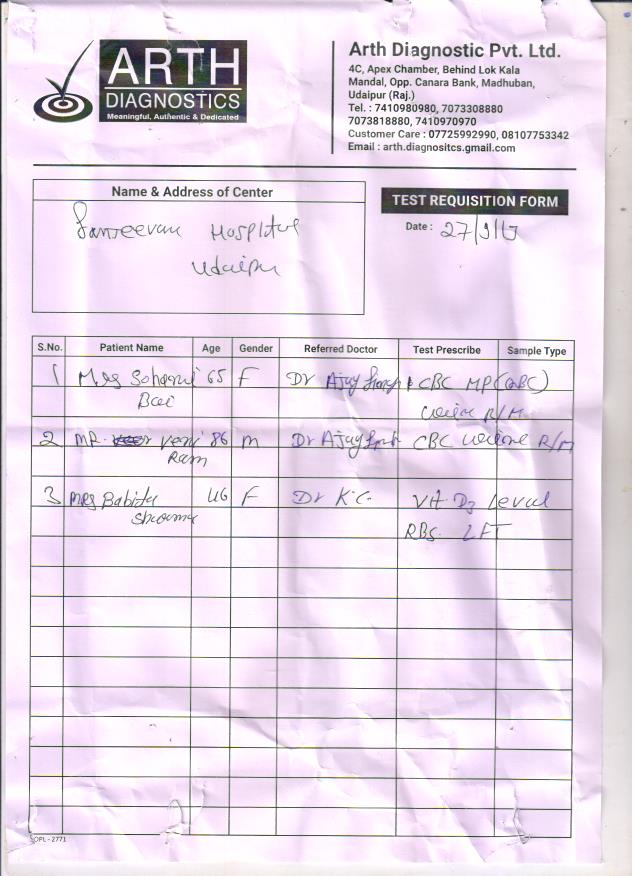 ARTH
DIAGNOSTICS
Meaningful, Authentic & Dedicated
Arth Diagnostic Pvt. Ltd.
4C, Apex Chamber, Behind Lok Kala
Mandal, Opp. Canara Bank, Madhuban,
Udaipur (Raj.)
Tel. : 7410980980, 7073308880
7073818880, 7410970970
Customer Care : 07725992990, 08107753342
Email : arth.diagnositcs.gmail.com
Name & Address of Center
Hospital
Udaipur
TEST REQUISITION FORM
Date : 27/9/17
S.No. Patient Name Age Gender Referred Doctor Test Prescribe Sample Type
1 Mrs 65 F Dr Ajay CBC MP
Bai Urine R/M
2 MR. 86 M Dr Ajay CBC Urine R/M
Ram
3 MRS Babita 46 F Dr K.C. Vit D3 Leval
Sharma RBS. LFT
OPL - 2771